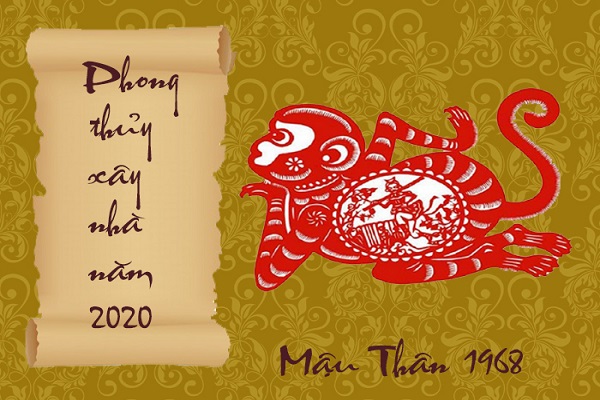 Phong
thủy
xây
nhà
năm
2020
Mậu Thân 1968